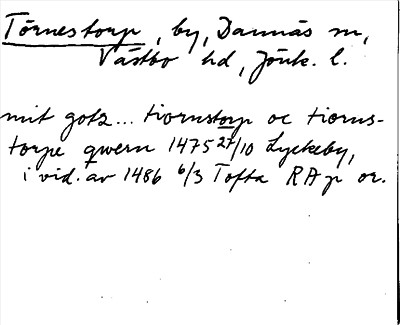 Törnestorp, by, Dannäs sn,
Västbo hd, Jönk. l.
mit gotz... tiornstorp oc tiorns-
torpe qwern 1475 27/10 Lyckeby,
i vid. av 1486 6/3 Tofta RAp or.